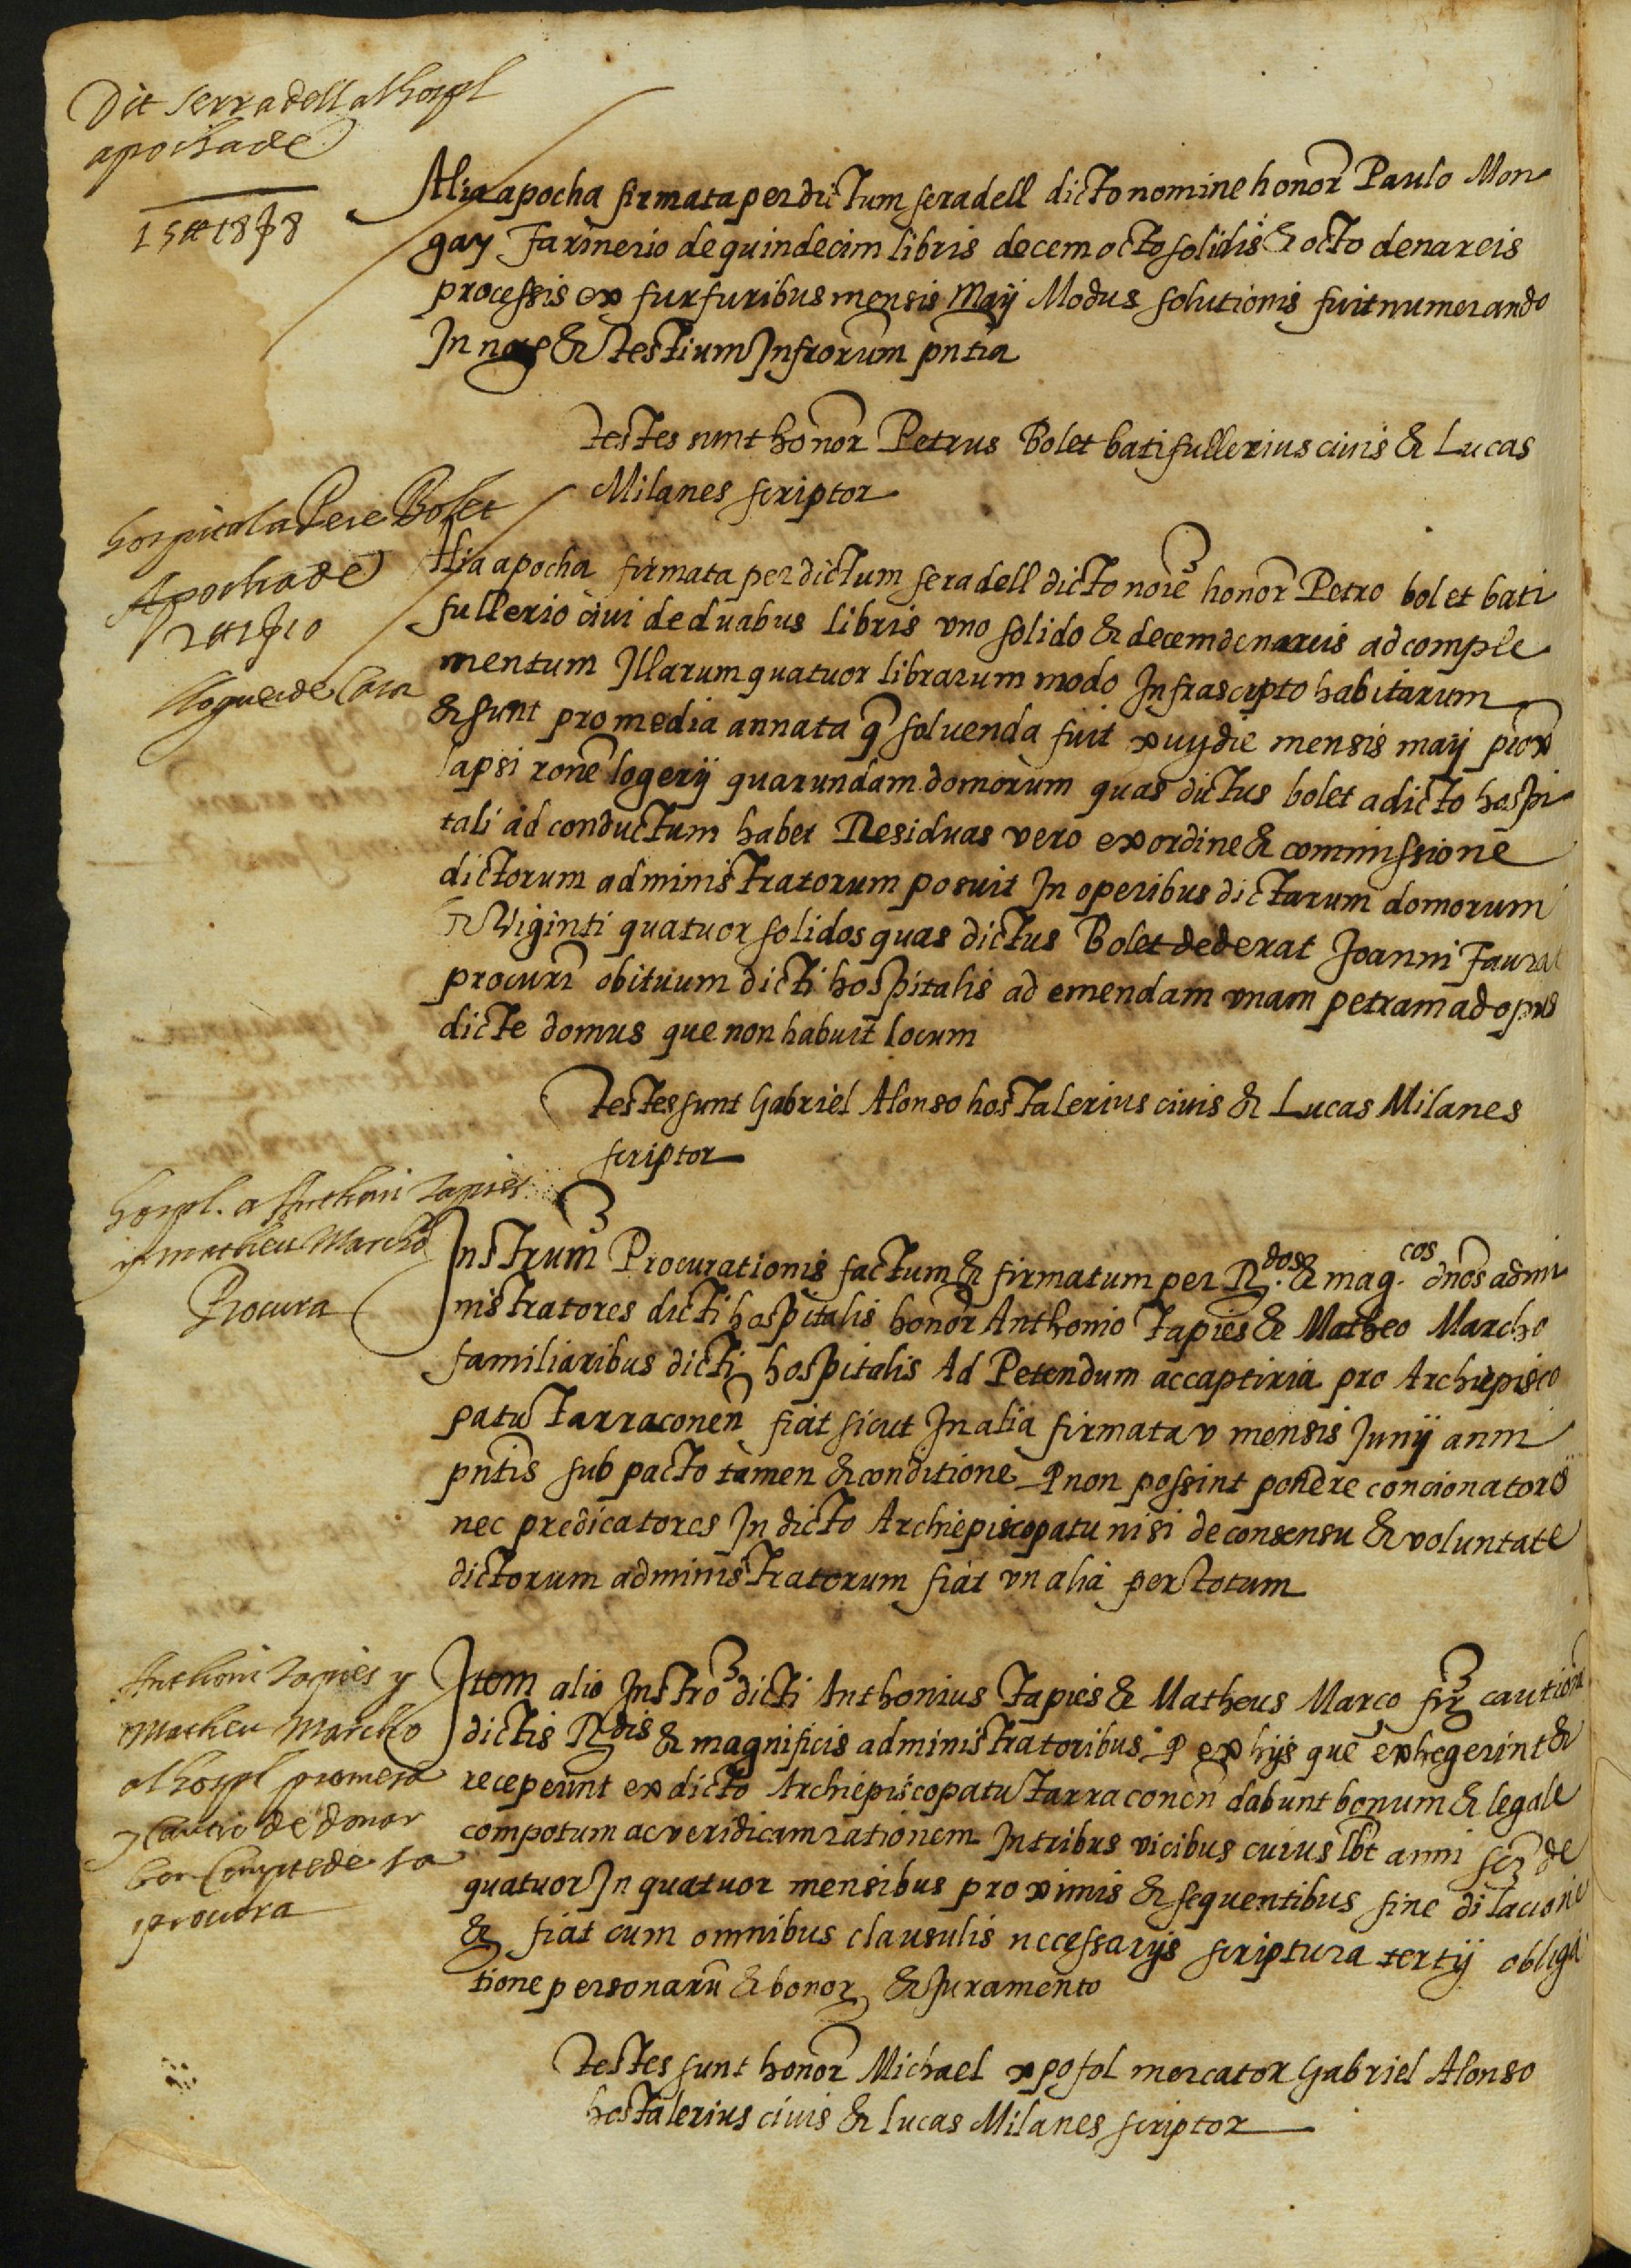 Dit Serradell al hospl
apocha de
15 ₶ 18 ẜ 8
Alia apocha firmata per dictum seradell dicto nomine honor̄ Paulo Mon
gay farinerio de quindecim libris decem octo solidis & octo denareis
processis ex furfuribus mensis Maij Modus solutionis fuit numerando
In & testium Infrorum pn̄tia
testes sunt honor̄ Petrus Bolet batifullerius ciuis & Lucas
Milanes scriptor
hospital a Pere Bolet
Apocha de
2 ₶ 1 ẜ 10
lloguer de casa
Alia apocha firmata per dictum seradell dicto noīe honor̄ Petro bolet bati
fullerio ciui de duabus libris vno solido & decem denareis ad comple
mentum Illarum quatuor librarum modo Infrascripto habitarum
& sunt pro media annata q̄ soluenda fuit xuij die mensis maij prox̄
lapsi rōne logerij quarundam domorum quas dictus bolet a dicto hospi
tali ad conductum habet Residuas vero ex ordine & commissione
dictorum administratorum posuit In operibus dictarum domorum
& Viginti quatuor solidos quas dictus Bolet dederat Joanni Faurat
procurī obituum dicti hospitalis ad emendam vnam petram ad opus
dicte domus que non habuit locum
testes sunt Gabriel Alonso hostalerius ciuis & Lucas Milanes
scriptor
hospl. a Anthoni Tapies
y matheu Marcho
Procura
Instrum̄ Procurationis factum & firmatum per R.dos & mag.cos dn̄os admi
nistratores dicti hospitalis honor̄ Anthonio Tapies & Matheo Marcho
familiaribus dicti hospitalis Ad Petendum accaptiria pro Archiepisco
patu Tarraconen̄ fiat sicut In alia firmata v mensis Junij anni
pn̄tis sub pacto tamen & conditione q non possint ponere concionatores
nec predicatores In dicto Archiepiscopatu nisi de consensu & voluntate
dictorum administratorum fiat vn alia per totum
Anthoni Tapies y
Matheu Marcho
al hospl promesa
y cautio de donar
bon compte de sa
procura
Item alio Instro dicti Anthonius Tapies & Matheus Marco fir̄ caution̄
dictis R.dis & magnificis administratoribus q ex hijs que exhegerint &
receperint ex dicto Archiepiscopatu Tarraconen̄ dabunt bonum & legale
compotum ac veridicam rationem In tribus vicibus cuiuslbt anni scz̄ de
quatuor In quatuor mensibus proximis & sequentibus sine dilacione
& fiat cum omnibus clausulis necessarijs scriptura tertij obliga
tione personarū & bonor. & Juramento
testes sunt honor̄ Michael xpofol mercator Gabriel Alonso
hostalerius ciuis & lucas Milanes scriptor